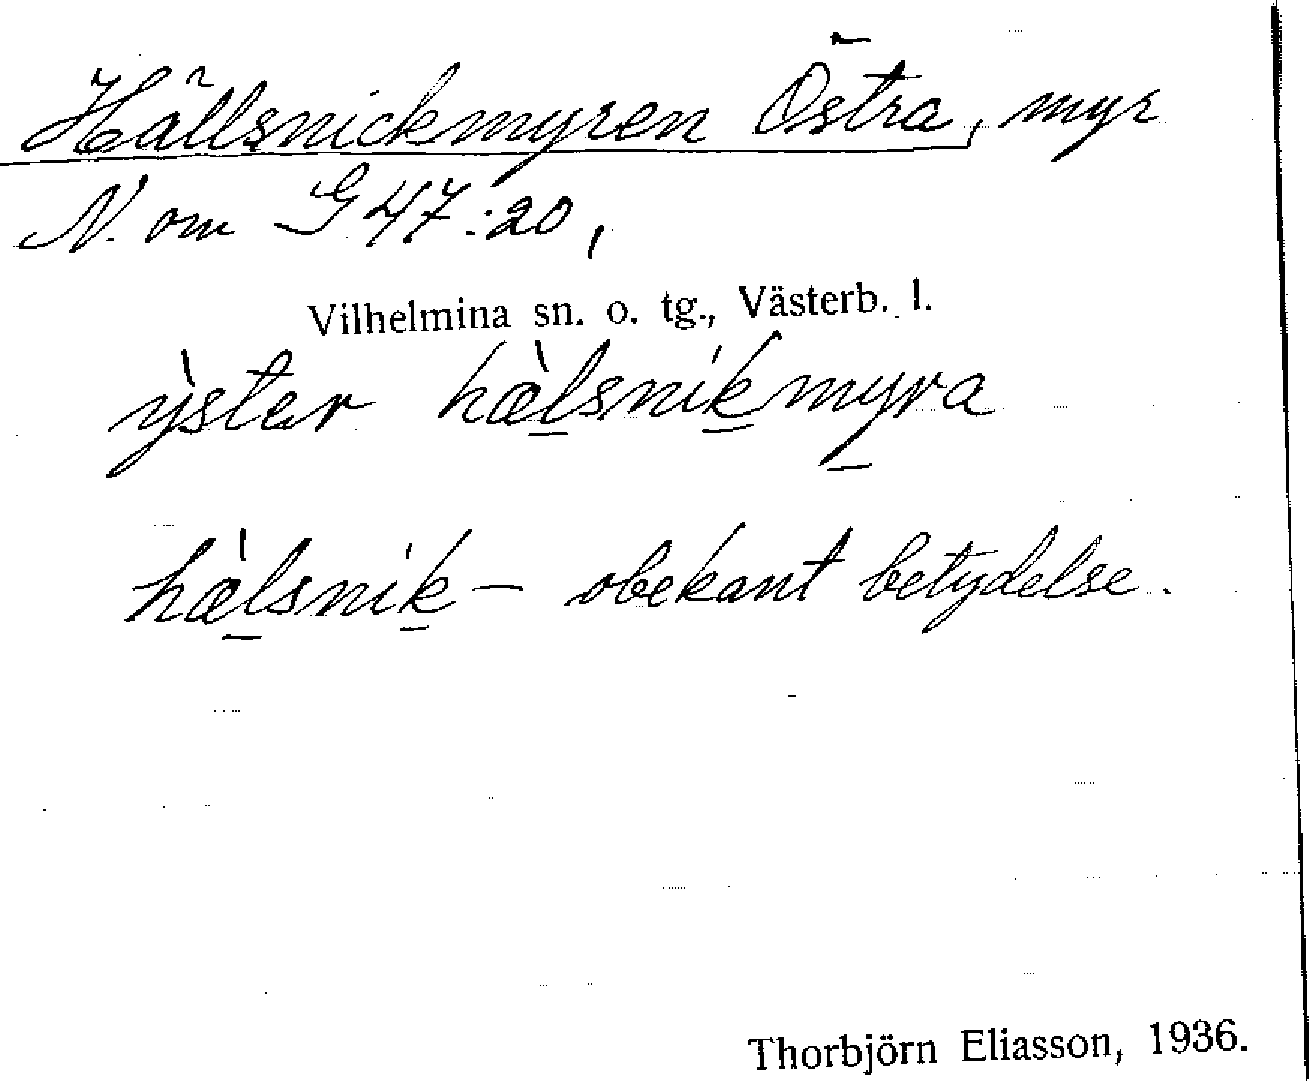 Hällsnickmyren Östra, myr
N. om G 47:20,
Vilhelmina sn. o. tg., Västerb. l.
ỳster hæ̀lsnikmyra
hæ̀lsnik – obekant betydelse.
Thorbjörn Eliasson, 1936.